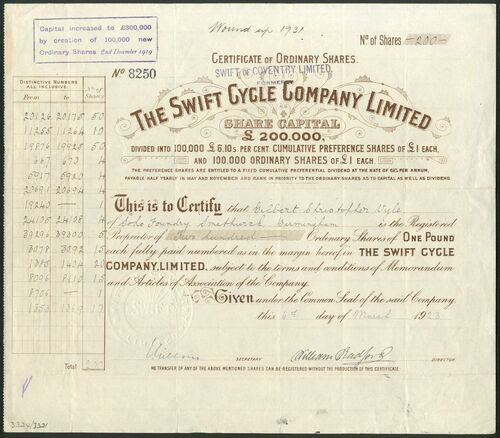 Capital increased to £300,000
by creation of 100,000 new
Ordinary Shares 2nd December 1919
Wound up 1931
No of Shares 200
No 8250
CERTIFICATE OF ORDINARY SHARES.
SWIFT OF COVENTRY LIMITED.
FORMERLY
THE SWIFT CYCLE COMPANY LIMITED
SHARE CAPITAL
£200,000,
DIVIDED INTO 100,000 £6.10s PER CENT. CUMULATIVE PREFERENCE SHARES OF £1 EACH,
AND 100,000 ORDINARY SHARES OF £1 EACH.
THE PREFERENCE SHARES ARE ENTITLED TO A FIXED CUMULATIVE PREFERENTIAL DIVIDEND AT THE RATE OF 6½ PER ANNUM,
PAYABLE HALF YEARLY IN MAY AND NOVEMBER AND RANK IN PRIORITY TO THE ORDINARY SHARES AS TO CAPITAL AS WELL AS DIVIDENDS
DISTINCTIVE NUMBERS ALL INCLUSIVE. No of Shares
From to
20126 20175 50
11255 11264 10
19876 19925 50
667 670 4
5917 5920 4
20691 20694 4
19240 1
24105 24108 4
39296 39300 5
3078 3092 15
20
10
8706 1
1353 1369 17
Total 200
This is to Certify that Gilbert Christopher Vyle
of Soho Foundry Smethwick Birmingham is the Registered
Proprietor of Two hundred Ordinary Shares of ONE POUND
each fully paid numbered as in the margin hereof in THE SWIFT CYCLE
COMPANY, LIMITED. subject to the terms and conditions of Memorandum
and Articles of Association of the Company.
Given under the Common Seal of the said Company
this 6th day of March 1923
SECRETARY
William Radford DIRECTOR.
NO TRANSFER OF ANY OF THE ABOVE MENTIONED SHARES CAN BE REGISTERED WITHOUT THE PRODUCTION OF THIS CERTIFICATE